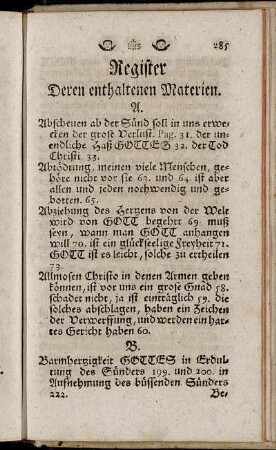 285
Register
Deren enthaltenen Materien.
A.
Abscheuen ab der Sünd soll in uns erwe-
cken der grosse Verlust. Pag. 31. der un-
endliche Haß GOTTES 32. der Tod
Christi 33.
Abtödtung, meinen viele Menschen, ge-
höre nicht vor sie 63. und 64. ist aber
allen und jeden nothwendig und ge-
botten. 65.
Abziehung des Hertzens von der Welt
wird von GOTT begehrt 69. muß
seyn, wann man GOTT anhangen
will 70. ist ein glückseelige Freyheit 71.
GOTT ist es leicht, solche zu ertheilen
73.
Allmosen Christo in denen Armen geben
können, ist vor uns ein grosse Gnad 58.
schadet nicht, ja ist einträglich 59. die
solches abschlagen, haben ein Zeichen
der Verwerffung, und werden ein har-
tes Gericht haben 60.
B.
Barmhertzigkeit GOTTES in Erdul-
tung des Sünders 199. und 200. in
Aufnehmung des büssenden Sünders
222.
Be-